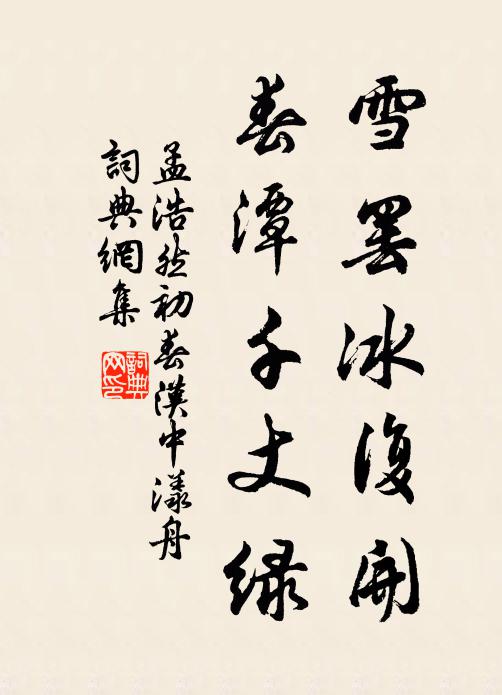 雪罢冰復開
春潭千丈绿
孟浩然初春漢中漾舟
詞典網集
詞典網印